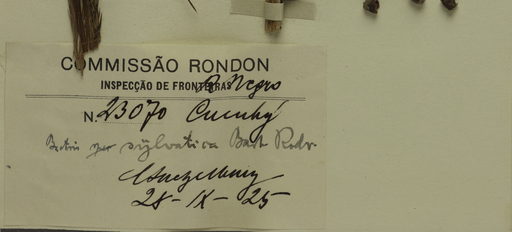 COMMISSÃO RONDON
INSPECÇÃO DE FRONTEIRAS R. Negro
N. 23070 Cucuhy
sylvatica Barb Rodr.
Luetzelburg
28-IX-25